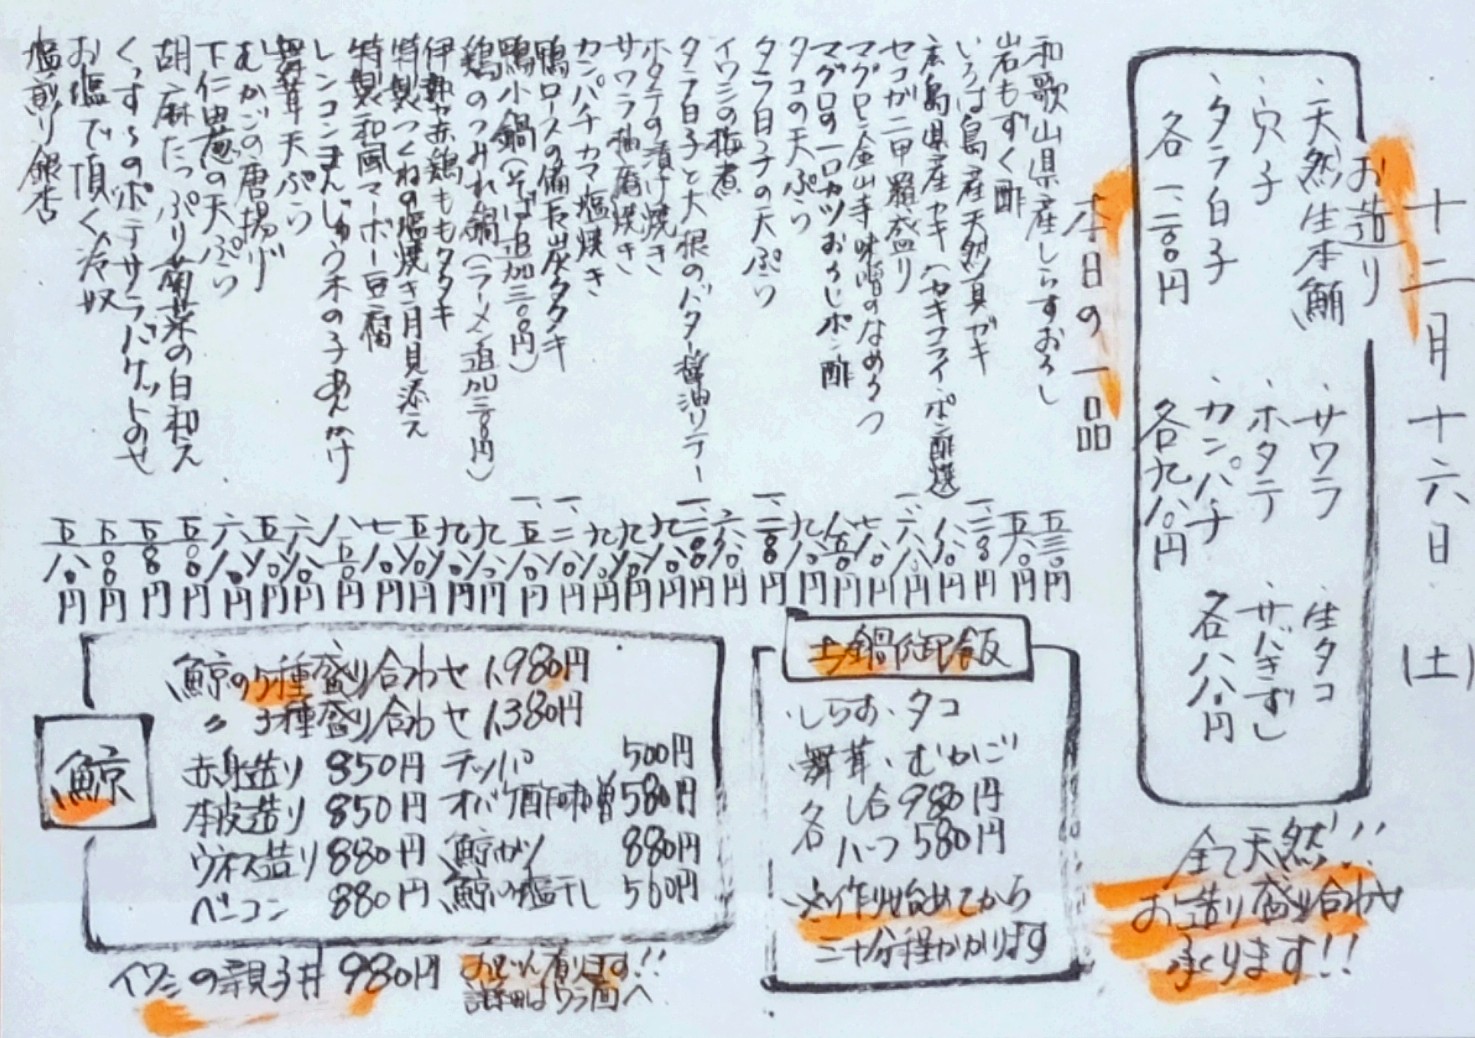 十二月十六日(土)
お造り
・天然生本鮪
・穴子
・タラ白子
各一二〇〇円
・サワラ
・ホタテ
・カンパチ
各九八〇円
・生タコ
・サバきずし
各八八〇円
全て天然!!
お造り盛り合わせ
承ります!!
本日の一品
和歌山県産しらすおろし 五三〇円
岩もずく酢 五八〇円
いろは島産天然真ガキ
広島県産カキ(カキフライ・ポン酢・燻)
セコガニ甲羅盛り
マグロと金山寺味噌のなめろう 七八〇円
マグロの一口カツおろしポン酢 八五〇円
タコの天ぷら 九八〇円
タラ白子の天ぷら 一、二〇〇円
イワシの梅煮 六八〇円
タラ白子と大根のバター醤油ソテー 一、二〇〇円
ホタテの漬け焼き 九八〇円
サワラ柚庵焼き 九八〇円
カンパチカマ塩焼き 九八〇円
鴨ロースの備長炭タタキ 一、二八〇円
鴨小鍋(そば追加三〇〇円) 一、五八〇円
鶏のつみれ鍋(ラーメン追加三〇〇円) 九八〇円
伊勢赤鶏ももタタキ 九八〇円
特製つくねの塩焼き月見添え 五八〇円
特製和風マーボー豆腐 七八〇円
レンコンまんじゅう木の子あんかけ 八五〇円
舞茸天ぷら 六八〇円
むかごの唐揚げ 五八〇円
下仁田葱の天ぷら 六八〇円
胡麻たっぷり菊菜の白和え
くんすモのポテサラバケットのせ 五五〇円
お塩で頂く冷奴 五〇〇円
塩煎り銀杏 五八〇円
土鍋御飯
・しらす・タコ
・舞茸・むかご
各 一合 980円
ハーフ 580円
※作り始めてから
三十分程かかります
鯨
鯨の5種盛り合わせ 1,980円
〃 3種盛り合わせ 1,380円
赤身造り 850円 テッパ 500円
本皮造り 850円 オバケ酢味噌 580円
ウネス造り 880円 鯨カツ 880円
ベーコン 880円 鯨の塩干し 560円
イワシの親子丼 980円
おでん有ります!!
詳細はウラ面へ